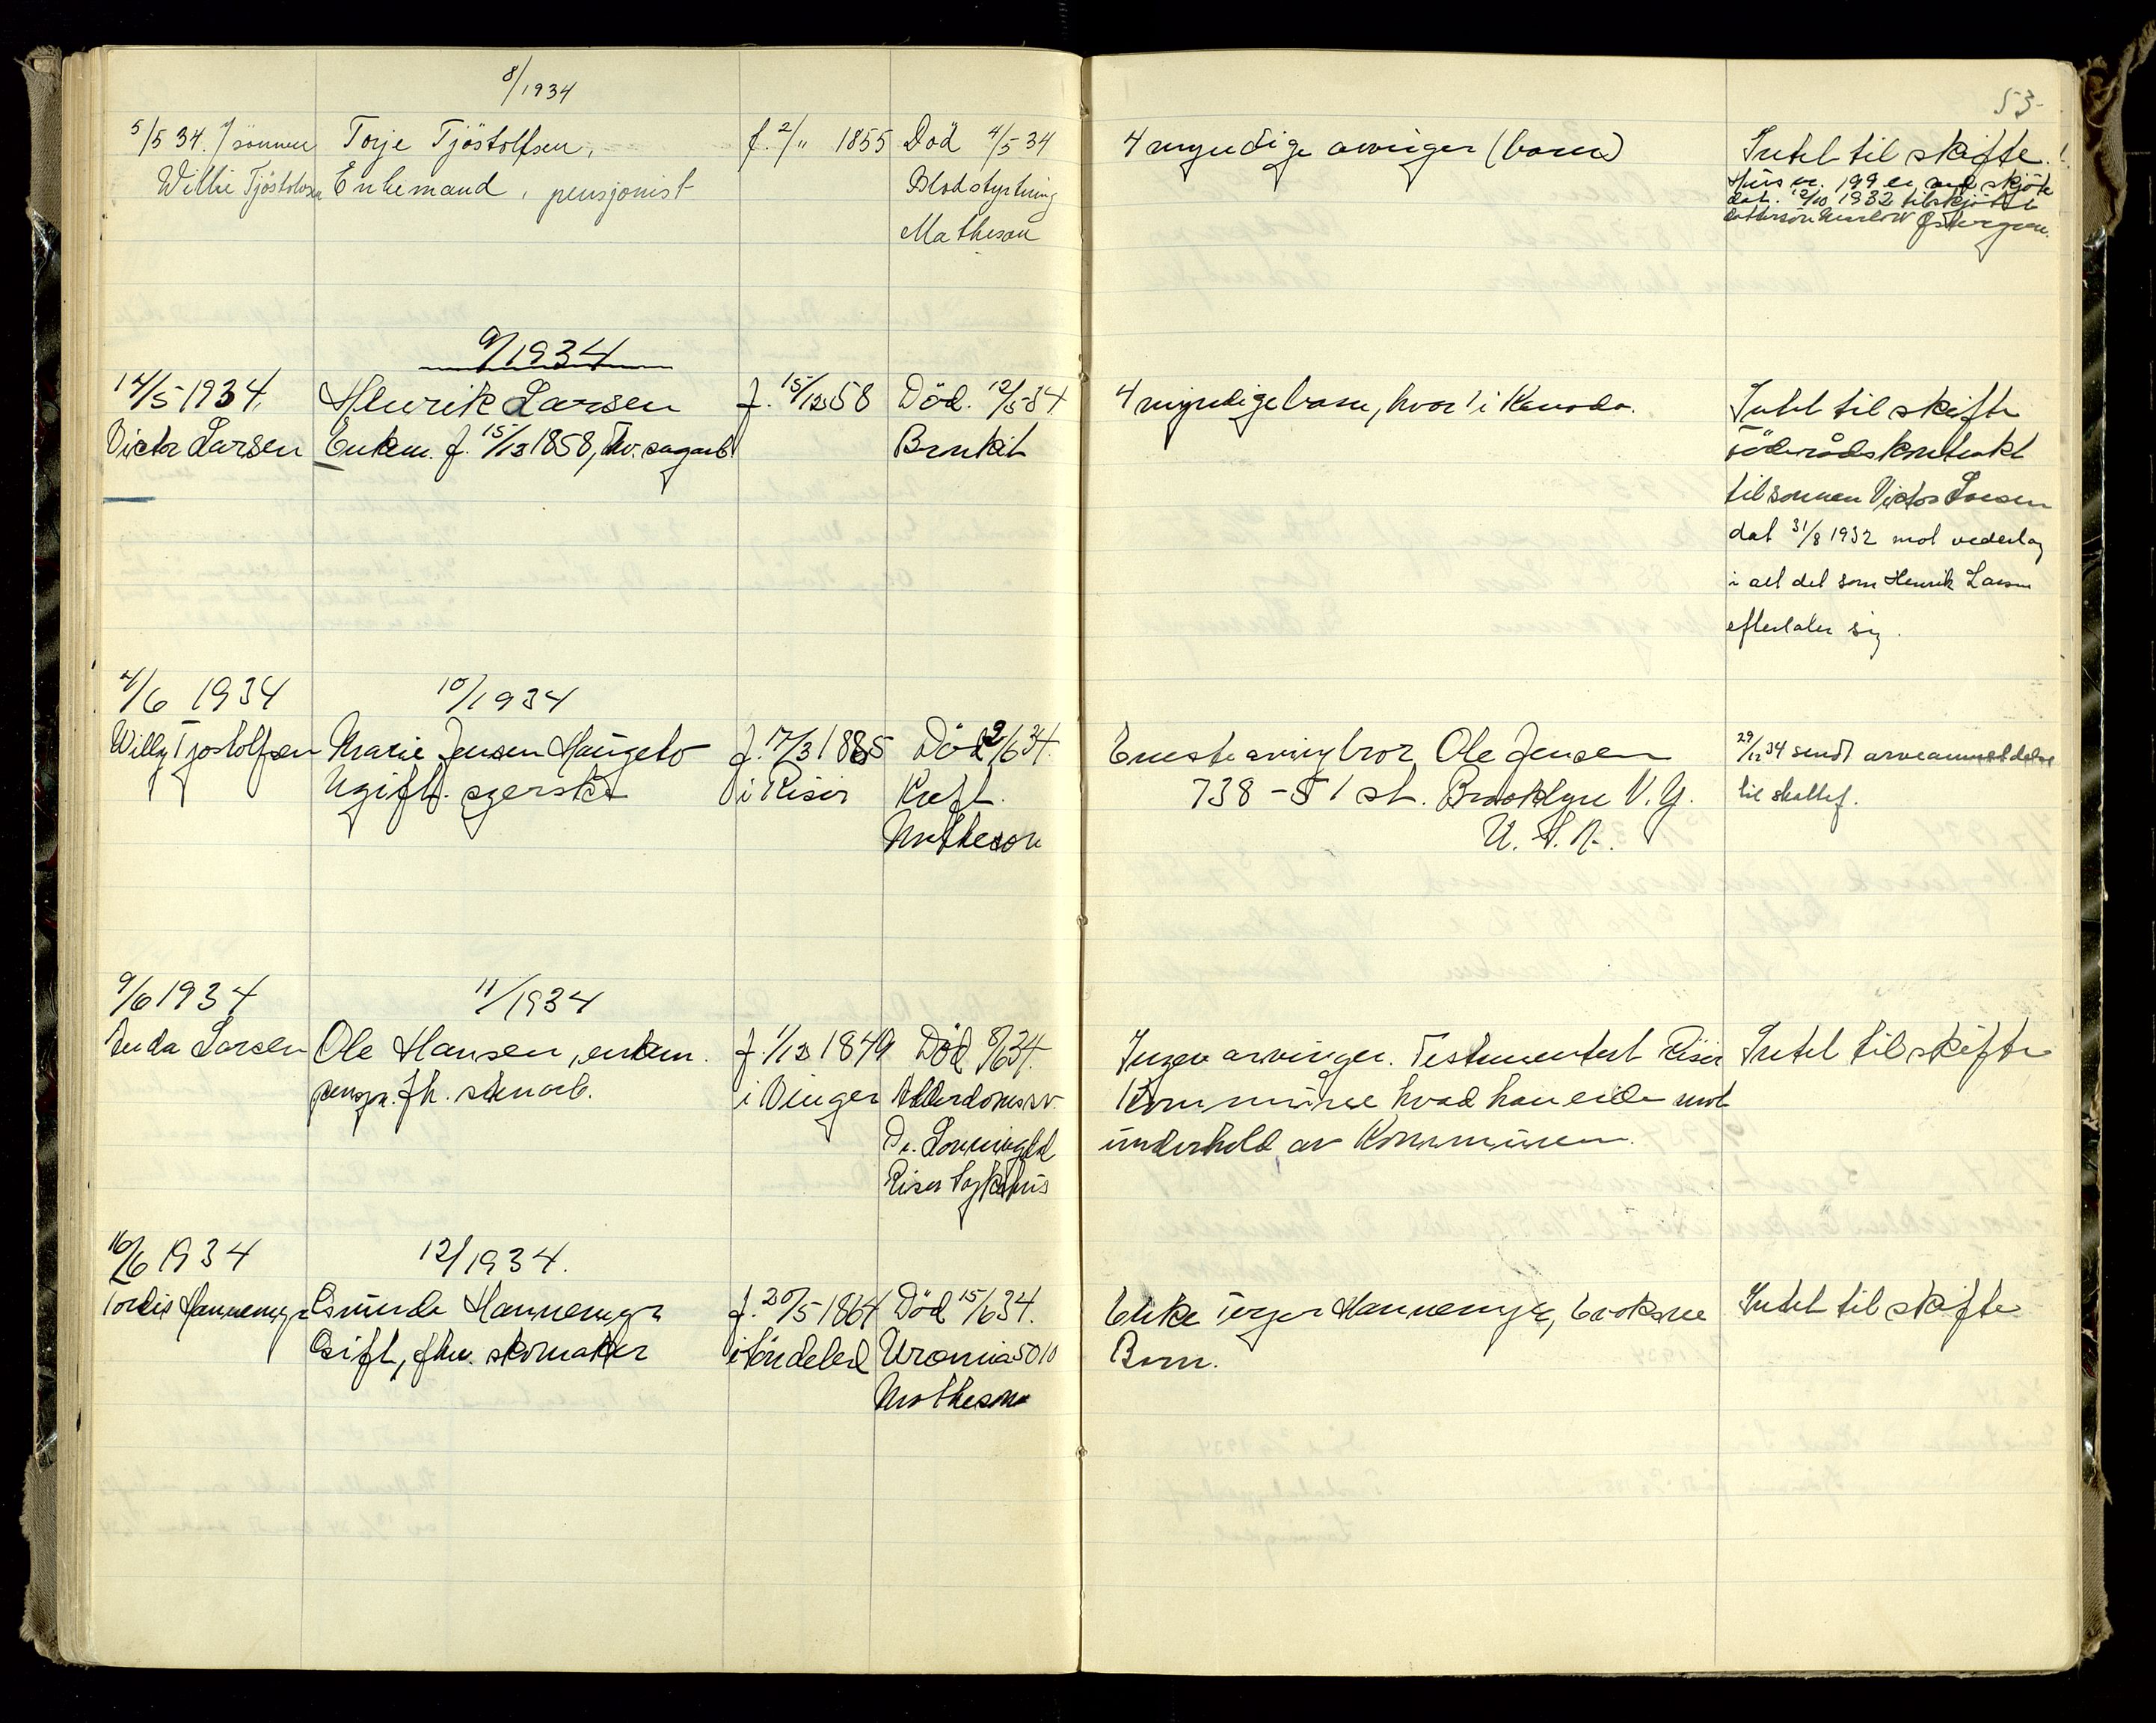 53
8/1934
5/5 34. v/ sønnen Torje Tjöstolfsen, f. 2/11 1855 Död 4/5 34 4 myndige arvinger (barn) Intet til skifte.
Willie Tjöstolvsen Enkemand, pensjonist Blodstyrtning Hus nr. 199 er ved skjöte
Matheson dat. 12/10 1932 tilskjötet
dattersön
9/1934
14/5 1934, Henrik Larsen f. 15/12 58 Död. 12/5 34 4 myndige barn, hvor 1 i Kanada. Intet til skifte
Victor Larsen Enkem. f. 15/12 1858, fhv. sagarb. Bronkit föderådskontrakt
til sönnen Victor Larsen
dat 31/8 1932 mot vederlag
i alt det som Henrik Larsen
efterlater sig.
4/6 1934 10/1934
Willy Tjostolfsen Marie Jensen Haugebo f. 17/3 1885 Död 2/6 34. Eneste arving bror Ole Jensen 29/12 34 sendt arveanmeldelse
Ugift. syerske i Risör Kreft. 738 - 51 st. Brooklyn N.Y. til skattef.
Matheson U.S.A.
9/6 1934 11/1934
Larsen Ole Hansen, enkem. f. 1/12 1849 Död 8/6 34. Ingen arvinger. Testamentert Risör Intet til skifte
pensjon. fh. stenarb. i Vinger Alderdomssv. Kommune hvad han eide mot
Dr. underhold av Kommunen.
Risör Sykehus
16/6 1934 12/1934.
Tordis Hannemyr Gunde Hannemyr f. 20/5 1864 Död 15/6 34. Enke Hannemyr, 6 voksne Intet til skifte
Gift, fhv. skomaker i Söndeled Uræmia 5010 Barn.
Matheson